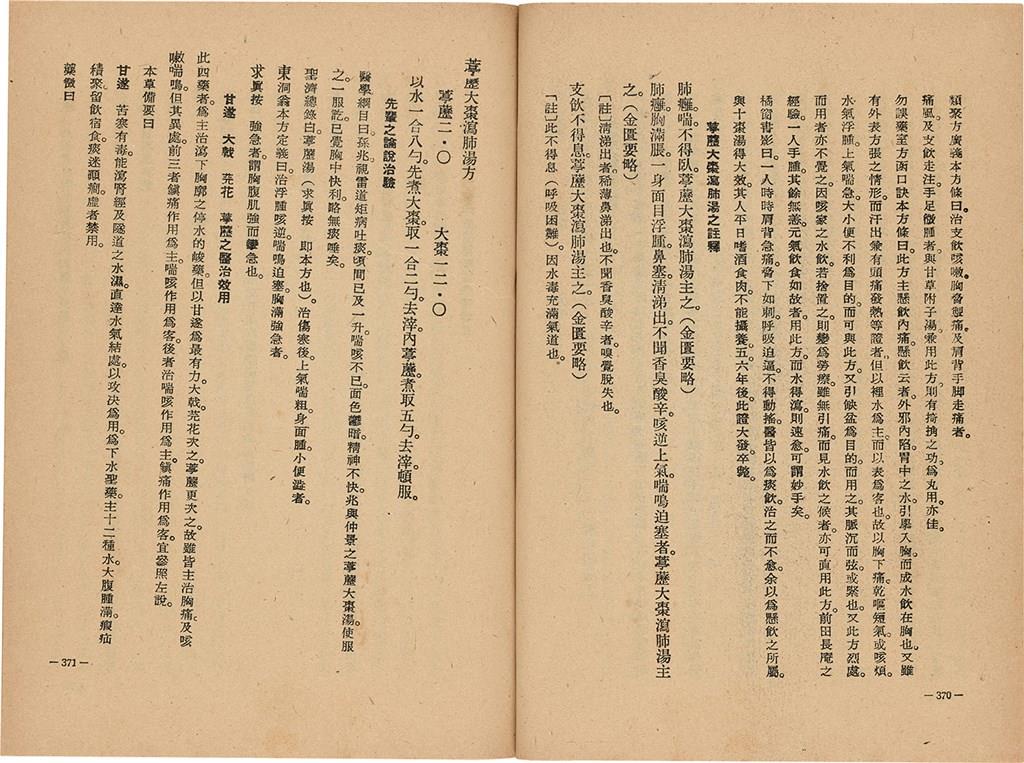 類聚方廣義本方條曰治支飲咳嗽胸脅掣痛及肩背手脚走痛者。
痛風及支飲走注手足微腫者與甘草附子湯兼用此方則有掎捔之功爲丸用亦佳。
勿誤藥室方函口訣本方條曰此方主懸飲內痛懸飲云者外邪內陷胃中之水引擧入胸而成水飲在胸也又雖
有外表方張之情形而汗出兼有頭痛發熱等證者但以裡水爲主而以表爲客也故以胸下痛乾嘔短氣或咳煩。
水氣浮腫上氣喘急大小便不利爲目的而可與此方又引缺盆爲目的而用之其脈沉而弦或緊也又此方烈處。
而用者亦不覺之因咳家之水飲若捨置之則變爲勞瘵雖無引痛而見水飲之候者亦可直用此方前田長庵之
經驗一人手腫其餘無恙元氣飲食如故者用此方而水得瀉則速愈可謂妙手矣。
橘窗書影曰一人時時肩背急痛脅下如刺呼吸迫逼不得動搖醫皆以爲痰飲治之而不愈余以爲懸飲之所屬。
與十棗湯得大效其人平日嗜酒食肉不能攝養五六年後此證大發卒斃。
葶藶大棗瀉肺湯之註釋
肺癰喘不得臥葶藶大棗瀉肺湯主之（金匱要略）
肺癰胸滿脹一身面目浮腫鼻塞淸涕出不聞香臭酸辛咳逆上氣喘鳴迫塞者葶藶大棗瀉肺湯主
之。（金匱要略）
〔註〕淸涕出者稀薄鼻涕出也不聞香臭酸辛者嗅覺脫失也。
支飲不得息葶藶大棗瀉肺湯主之。（金匱要略）
〔註〕此不得息（呼吸困難）。因水毒充滿氣道也。
— 370 —
葶藶大棗瀉肺湯方
葶藶二・〇　大棗一二・〇
以水一合八勺先煮大棗取一合二勺去滓內葶藶煮取五勺去滓頓服。
先輩之論說治驗
醫學綱目曰孫兆視雷道矩病吐痰頃間已及一升喘咳不已面色鬱暗精神不快兆與仲景之葶藶大棗湯使服
之。一服訖已覺胸中快利略無痰唾矣。
聖濟總錄曰葶藶湯（求眞按　即本方也）治傷寒後上氣喘粗身面腫小便澁者。
東洞翁本方定義曰治浮腫咳逆喘鳴迫塞胸滿強急者。
求眞按　強急者謂胸腹肌強而攣急也。
甘遂　大戟　芫花　葶藶之醫治效用
此四藥者爲主治瀉下胸廓之停水的峻藥但以甘遂爲最有力大戟芫花次之葶藶更次之故雖皆主治胸痛及咳
嗽喘鳴但其異處前三者鎭痛作用爲主喘咳作用爲客後者治喘咳作用爲主鎭痛作用爲客宜參照左說。
本草備要曰
甘遂　苦寒有毒能瀉腎經及隧道之水濕直達水氣結處以攻決爲用爲下水聖藥主十二種水大腹腫滿癥疝
積聚留飲宿食痰迷癲癇虛者禁用。
藥徵曰
— 371 —